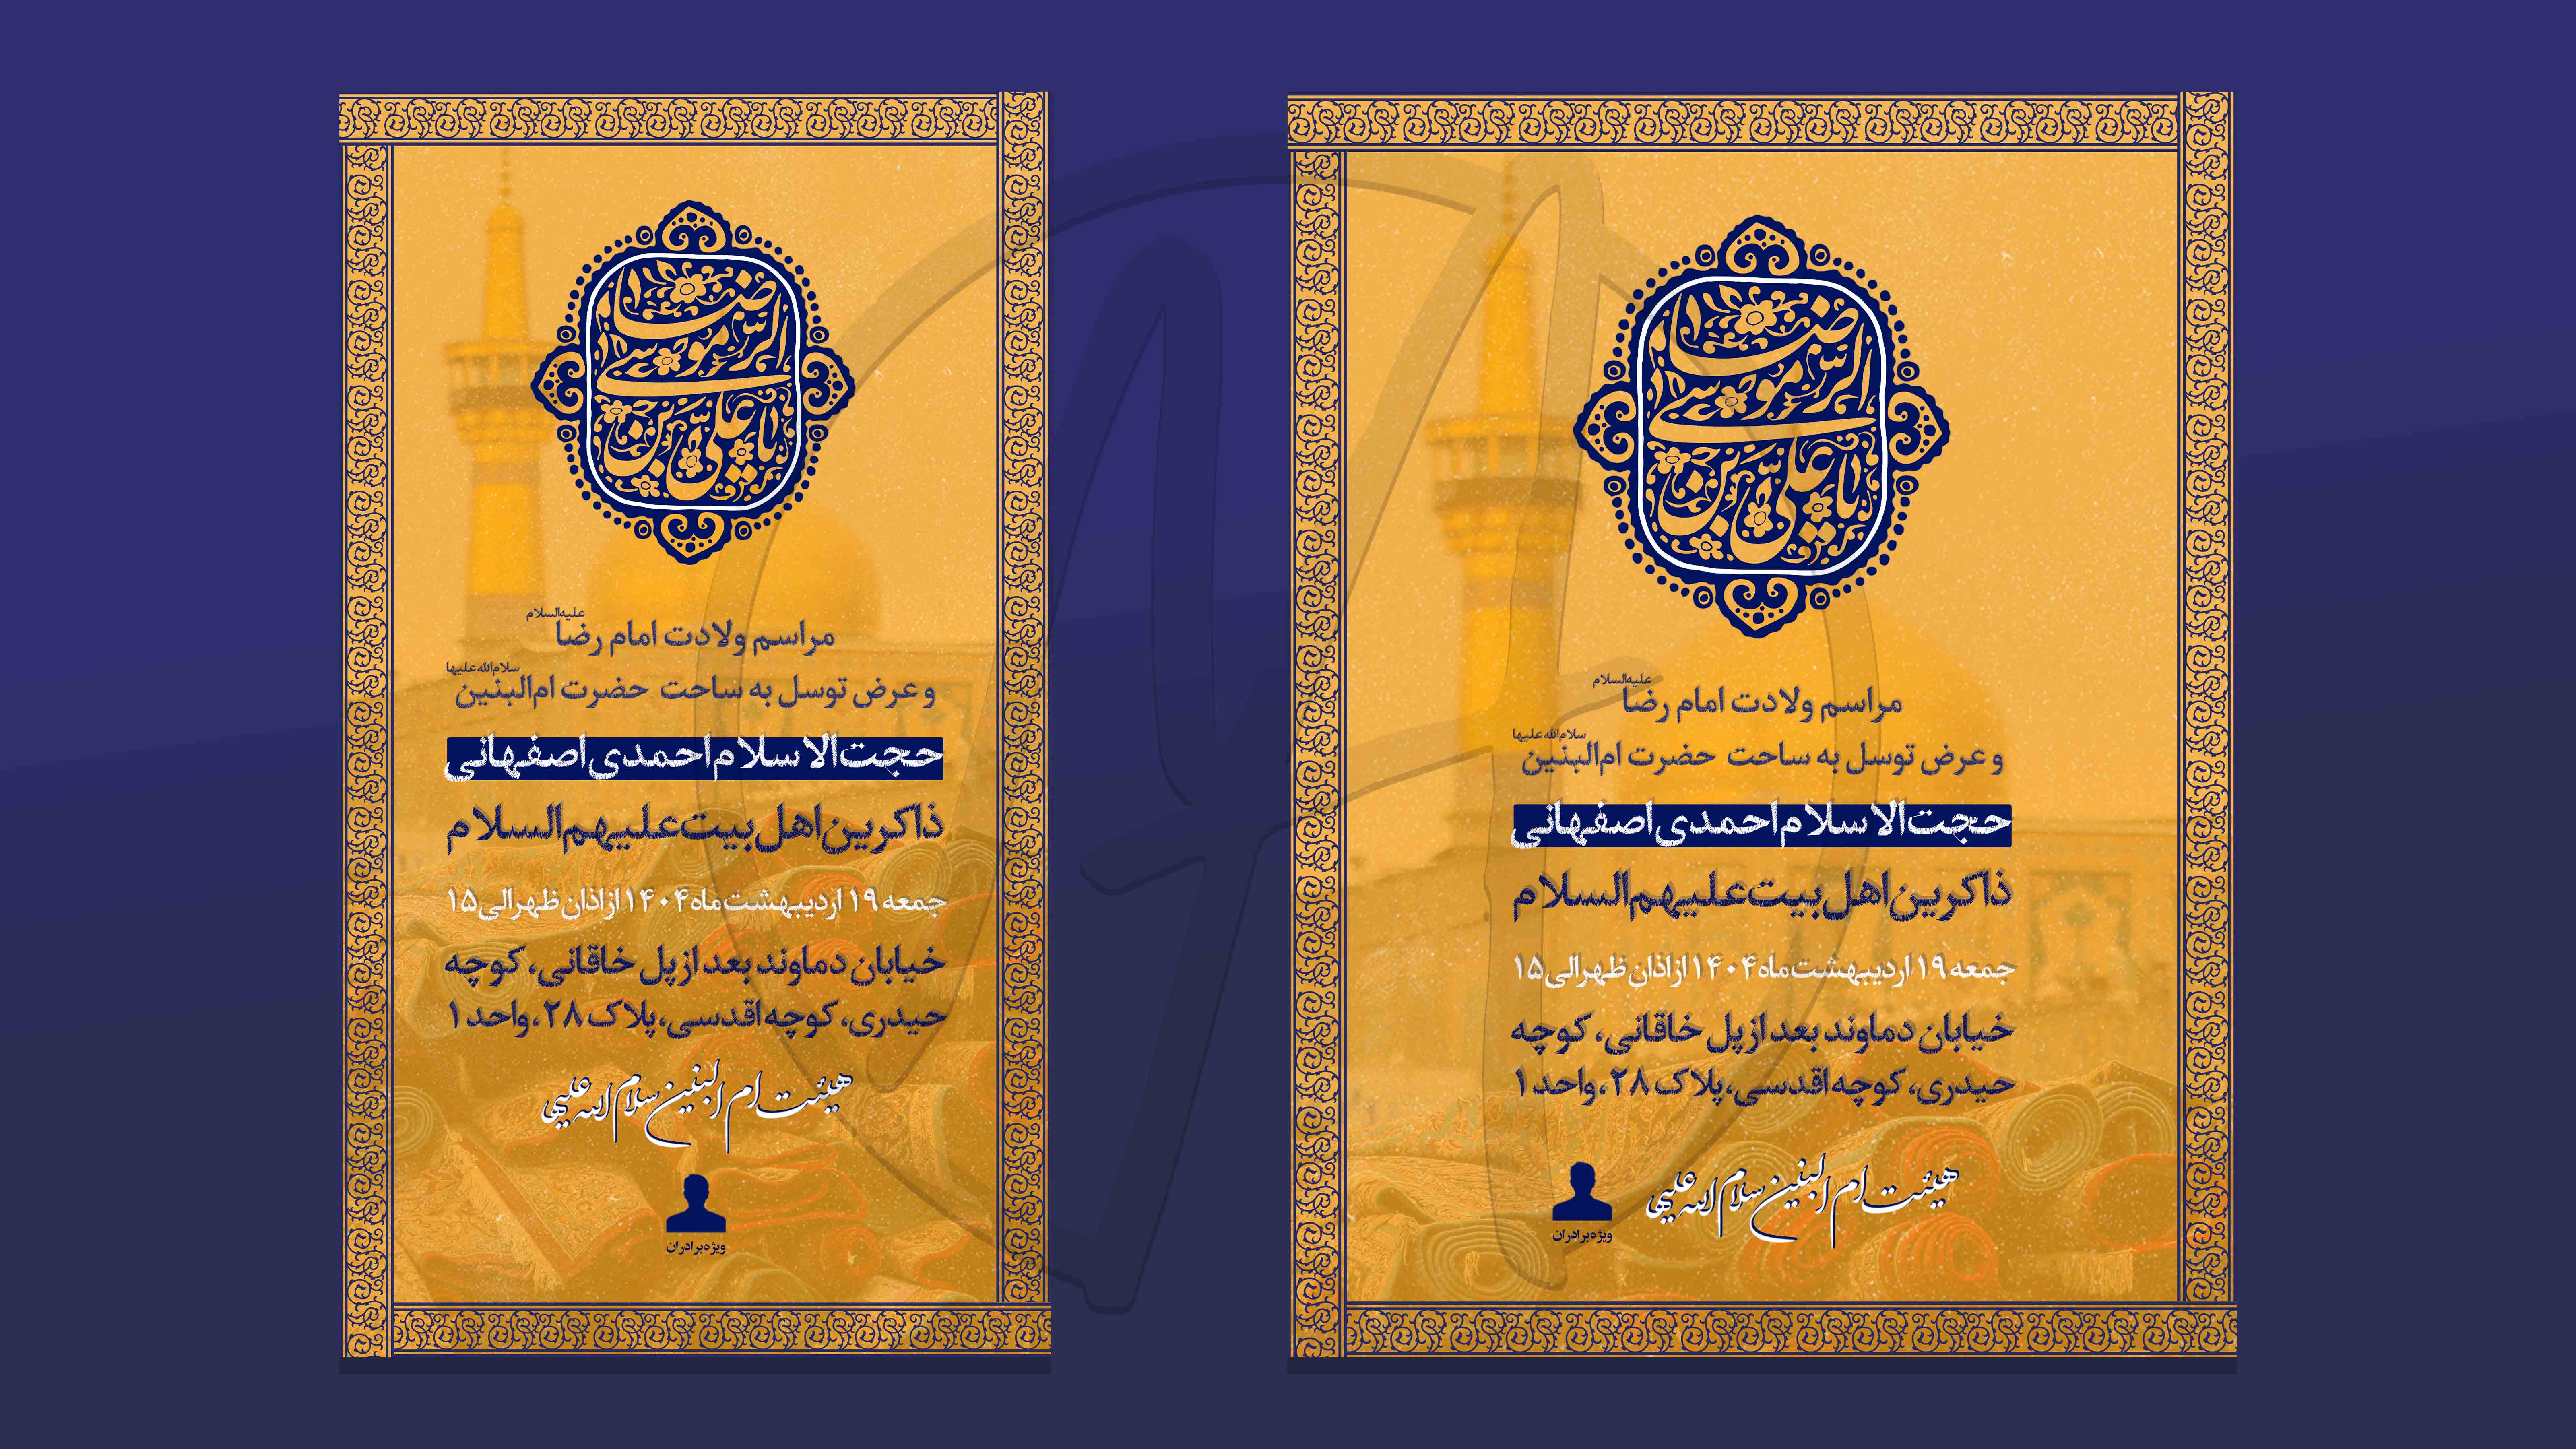 یا علی بن
موسی الرضا
علیه‌السلام
مراسم ولادت امام رضا
سلام‌الله علیها
و عرض توسل به ساحت حضرت ام‌البنین
حجت‌الاسلام احمدی اصفهانی
ذاکرین اهل بیت علیهم السلام
جمعه ۱۹ اردیبهشت ماه ۱۴۰۴ از اذان ظهر الی ۱۵
خیابان دماوند بعد از پل خاقانی، کوچه
حیدری، کوچه اقدسی، پلاک ۲۸، واحد ۱
هیئت ام البنین سلام الله علیها
ویژه برادران
یا علی بن
موسی الرضا
علیه‌السلام
مراسم ولادت امام رضا
سلام‌الله علیها
و عرض توسل به ساحت حضرت ام‌البنین
حجت‌الاسلام احمدی اصفهانی
ذاکرین اهل بیت علیهم السلام
جمعه ۱۹ اردیبهشت ماه ۱۴۰۴ از اذان ظهر الی ۱۵
خیابان دماوند بعد از پل خاقانی، کوچه
حیدری، کوچه اقدسی، پلاک ۲۸، واحد ۱
هیئت ام البنین سلام الله علیها
ویژه برادران